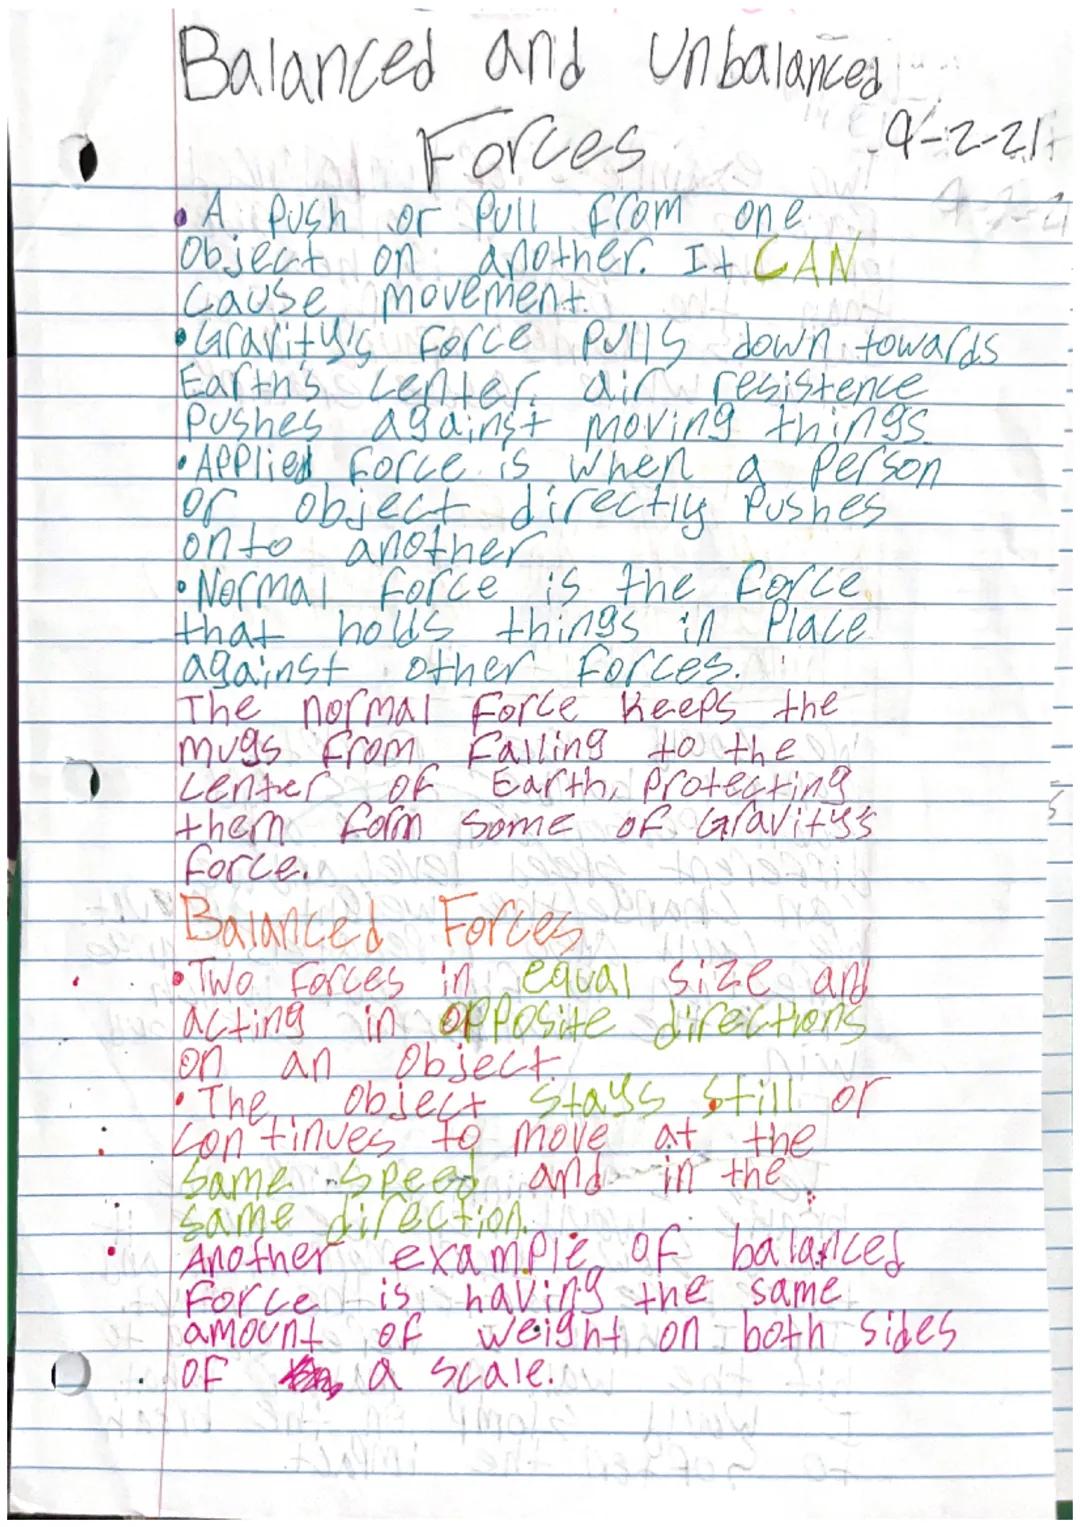 Balanced and Unbalanced
Forces 9-2-21
• A push or pull from one
object on another. It CAN
cause movement.
• Gravity's force pulls down towards
Earth's center. air resistence
pushes against moving things
• Applied force is when a person
or object directly pushes
onto another
• Normal force is the force
that holds things in place
against other forces.
The normal force keeps the
mugs from falling to the
center of Earth, protecting
them form some of Gravity's
force.
Balanced Forces
• Two forces in equal size and
acting in opposite directions
on an object
• The object stays still or
continues to move at the
same speed and in the
same direction.
Another example of balanced
force is having the same
amount of weight on both sides
of a scale.